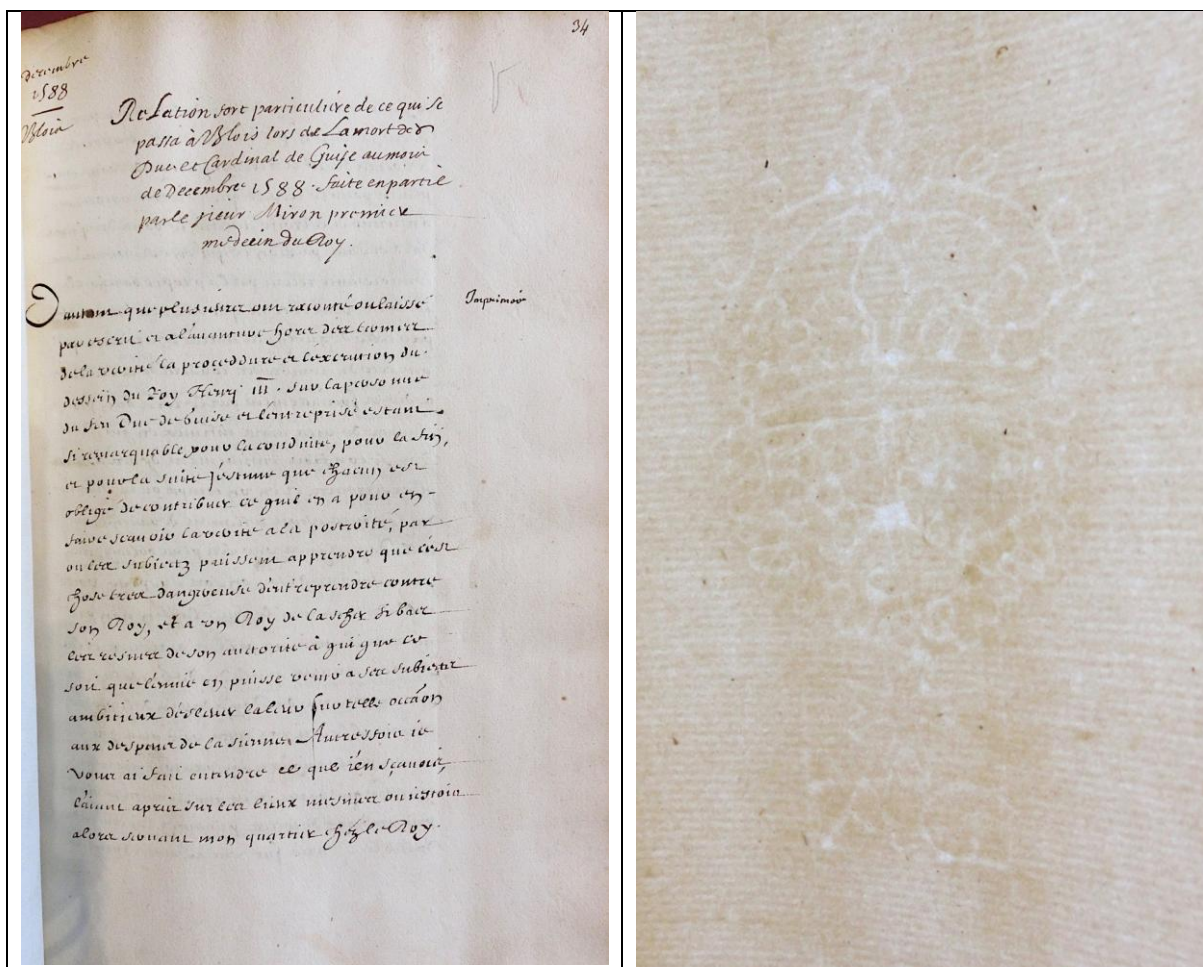 34
decembre
1588
Blois
Relation fort particuliere de ce qui se
passa à Blois lors de La mort des
Duc et Cardinal de Guise au mois
de Decembre 1588. faite en partie
par le sieur Miron premier
medecin du Roy.
Imprimée
Dautant que plusieurs ont raconté ou laisse
par escrit et a l'auanture hors des termes
de la verité la procedure et l'execution du
dessein du Roy Henri III. sur la personne
du feu Duc de Guise et l'entreprise estant
si remarquable pour la conduite, pour la fin,
et pour la suite j'estime que chacun est
obligé de contribuer ce quil en a pour en
faire scauoir la verité a la posterité, par
ou les subiectz puissent apprendre que c'est
chose tres dangereuse d'entreprendre contre
son Roy, et a un Roy de lascher si bas
les resnes de son auctorité à qui que ce
soit que l'enuie en puisse venir a ses subiects
ambitieux d'esleuer la leur sur telle occãon
aux despens de la sienne. Autresfois ie
vous ai fait entendre ce que i'en sçauois,
l'aiant apris sur les lieux mesmes ou i'estois
alors seruant mon quartier chez le Roy.